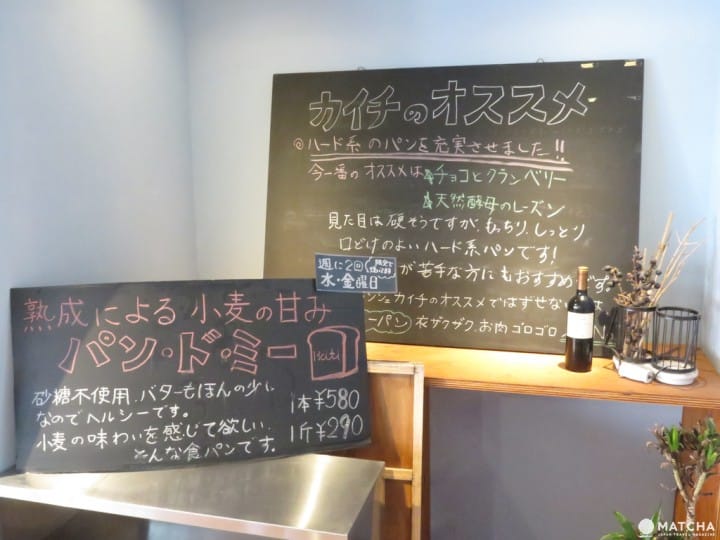 カイチのオススメ
◎ハード系のパンを充実させました!!
今一番のオススメは チョコとクランベリー
天然酵母のレーズン
見た目は硬そうですが、もっちり、しっとり
口どけのよいハード系パンです!
が苦手な方にもおすすめです
ンジュ カイチのオススメではずせな
ーパン 衣ザクザク、お肉ゴロゴロ
週に2回
水・金曜日
熟成による小麦の甘み
パン・ド・ミー
Kaiti
砂糖不使用、バターもほんの少し
なのでヘルシーです。
小麦の味わいを感じて欲しい、
そんな食パンです。
1本¥580
1斤¥290
MATCHA
JAPAN TRAVEL MAGAZINE